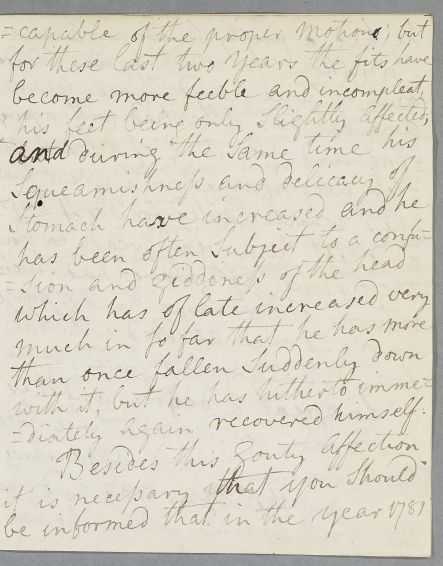 =capable of the proper motions; but
for these last two years the fits have
become more feeble and incompleat,
his feet being only slightly affected;
and during the same time his
Squeamishness and delicacy of
Stomach have increased and he
has been often Subject to a confu-
=sion and giddiness of the head
which has of late increased very
much in so far that he has more
than once fallen Suddenly down
with it, but he has hitherto imme-
=diately again recovered himself.
Besides this Gouty Affection
it is necessary that you Should
be informed that in the year 1781